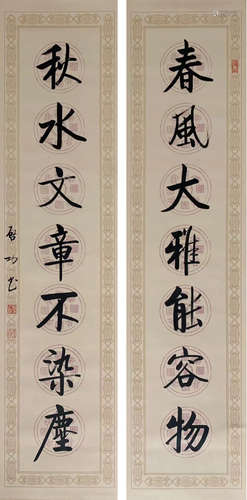 春風大雅能容物
秋水文章不染塵
啟功書